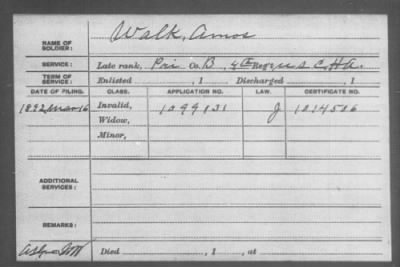 NAME OF SOLDIER: Walk, Amos
SERVICE: Late rank, Pri Co. B, Reg't U S C H A.
TERM OF SERVICE: Enlisted , 1 Discharged , 1
DATE OF FILING. CLASS. APPLICATION NO. LAW. CERTIFICATE NO.
1892 Mar 16 Invalid, 1099131 J 1014506
Widow,
Minor,
ADDITIONAL SERVICES:
REMARKS:
Died , 1 , at